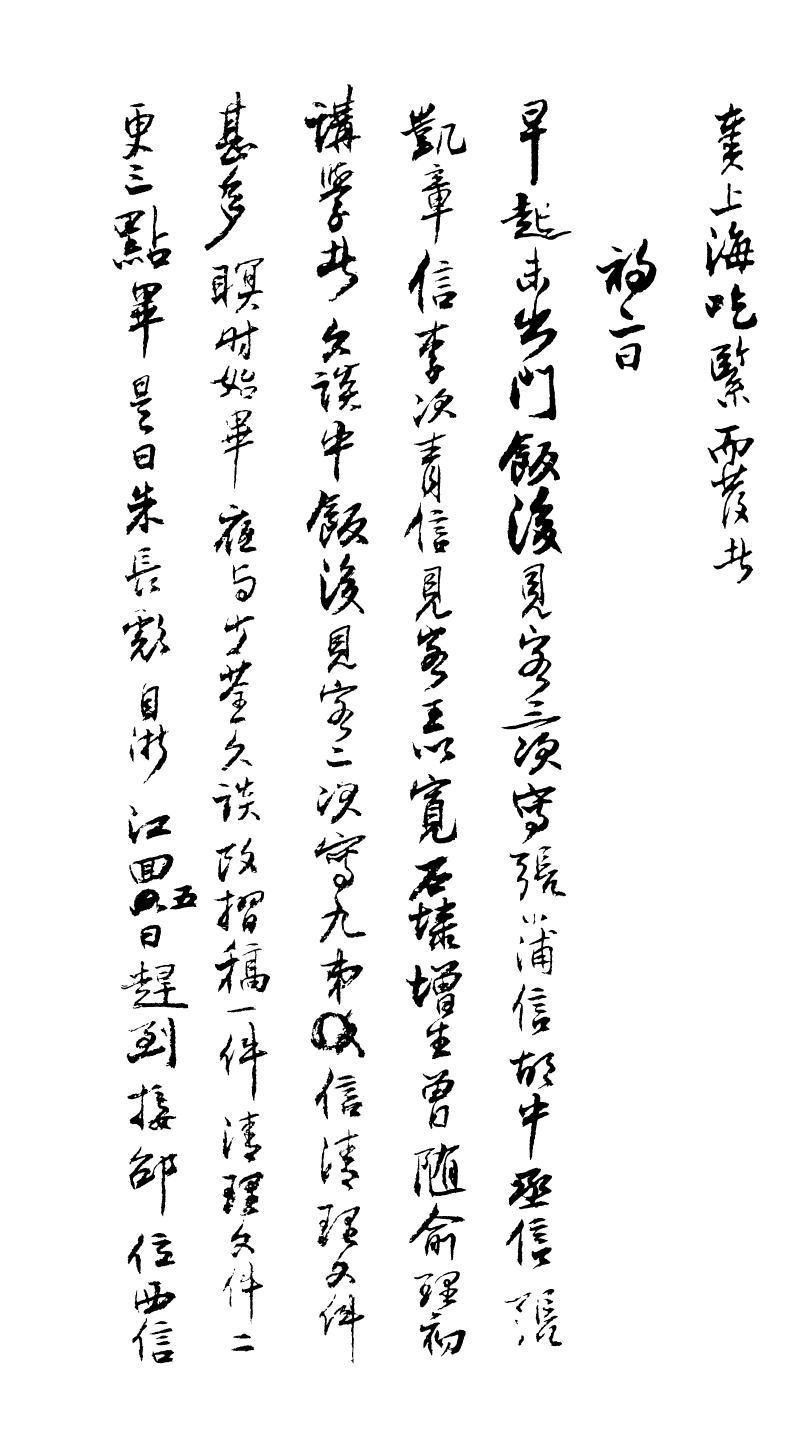 賁上海吃緊而發者
初二日
早起未出門飯後見客三次寫張小浦信胡中丞信張
凱章信李次青信見客王以寬石埭增生曾隨俞理初
講學者久談中飯後見客二次寫九弟信清理文件
甚多瞑时始畢夜与少荃久談改摺稿一件清理文件二
更三點畢是日朱長彪自浙江回五日趕到接邵位西信